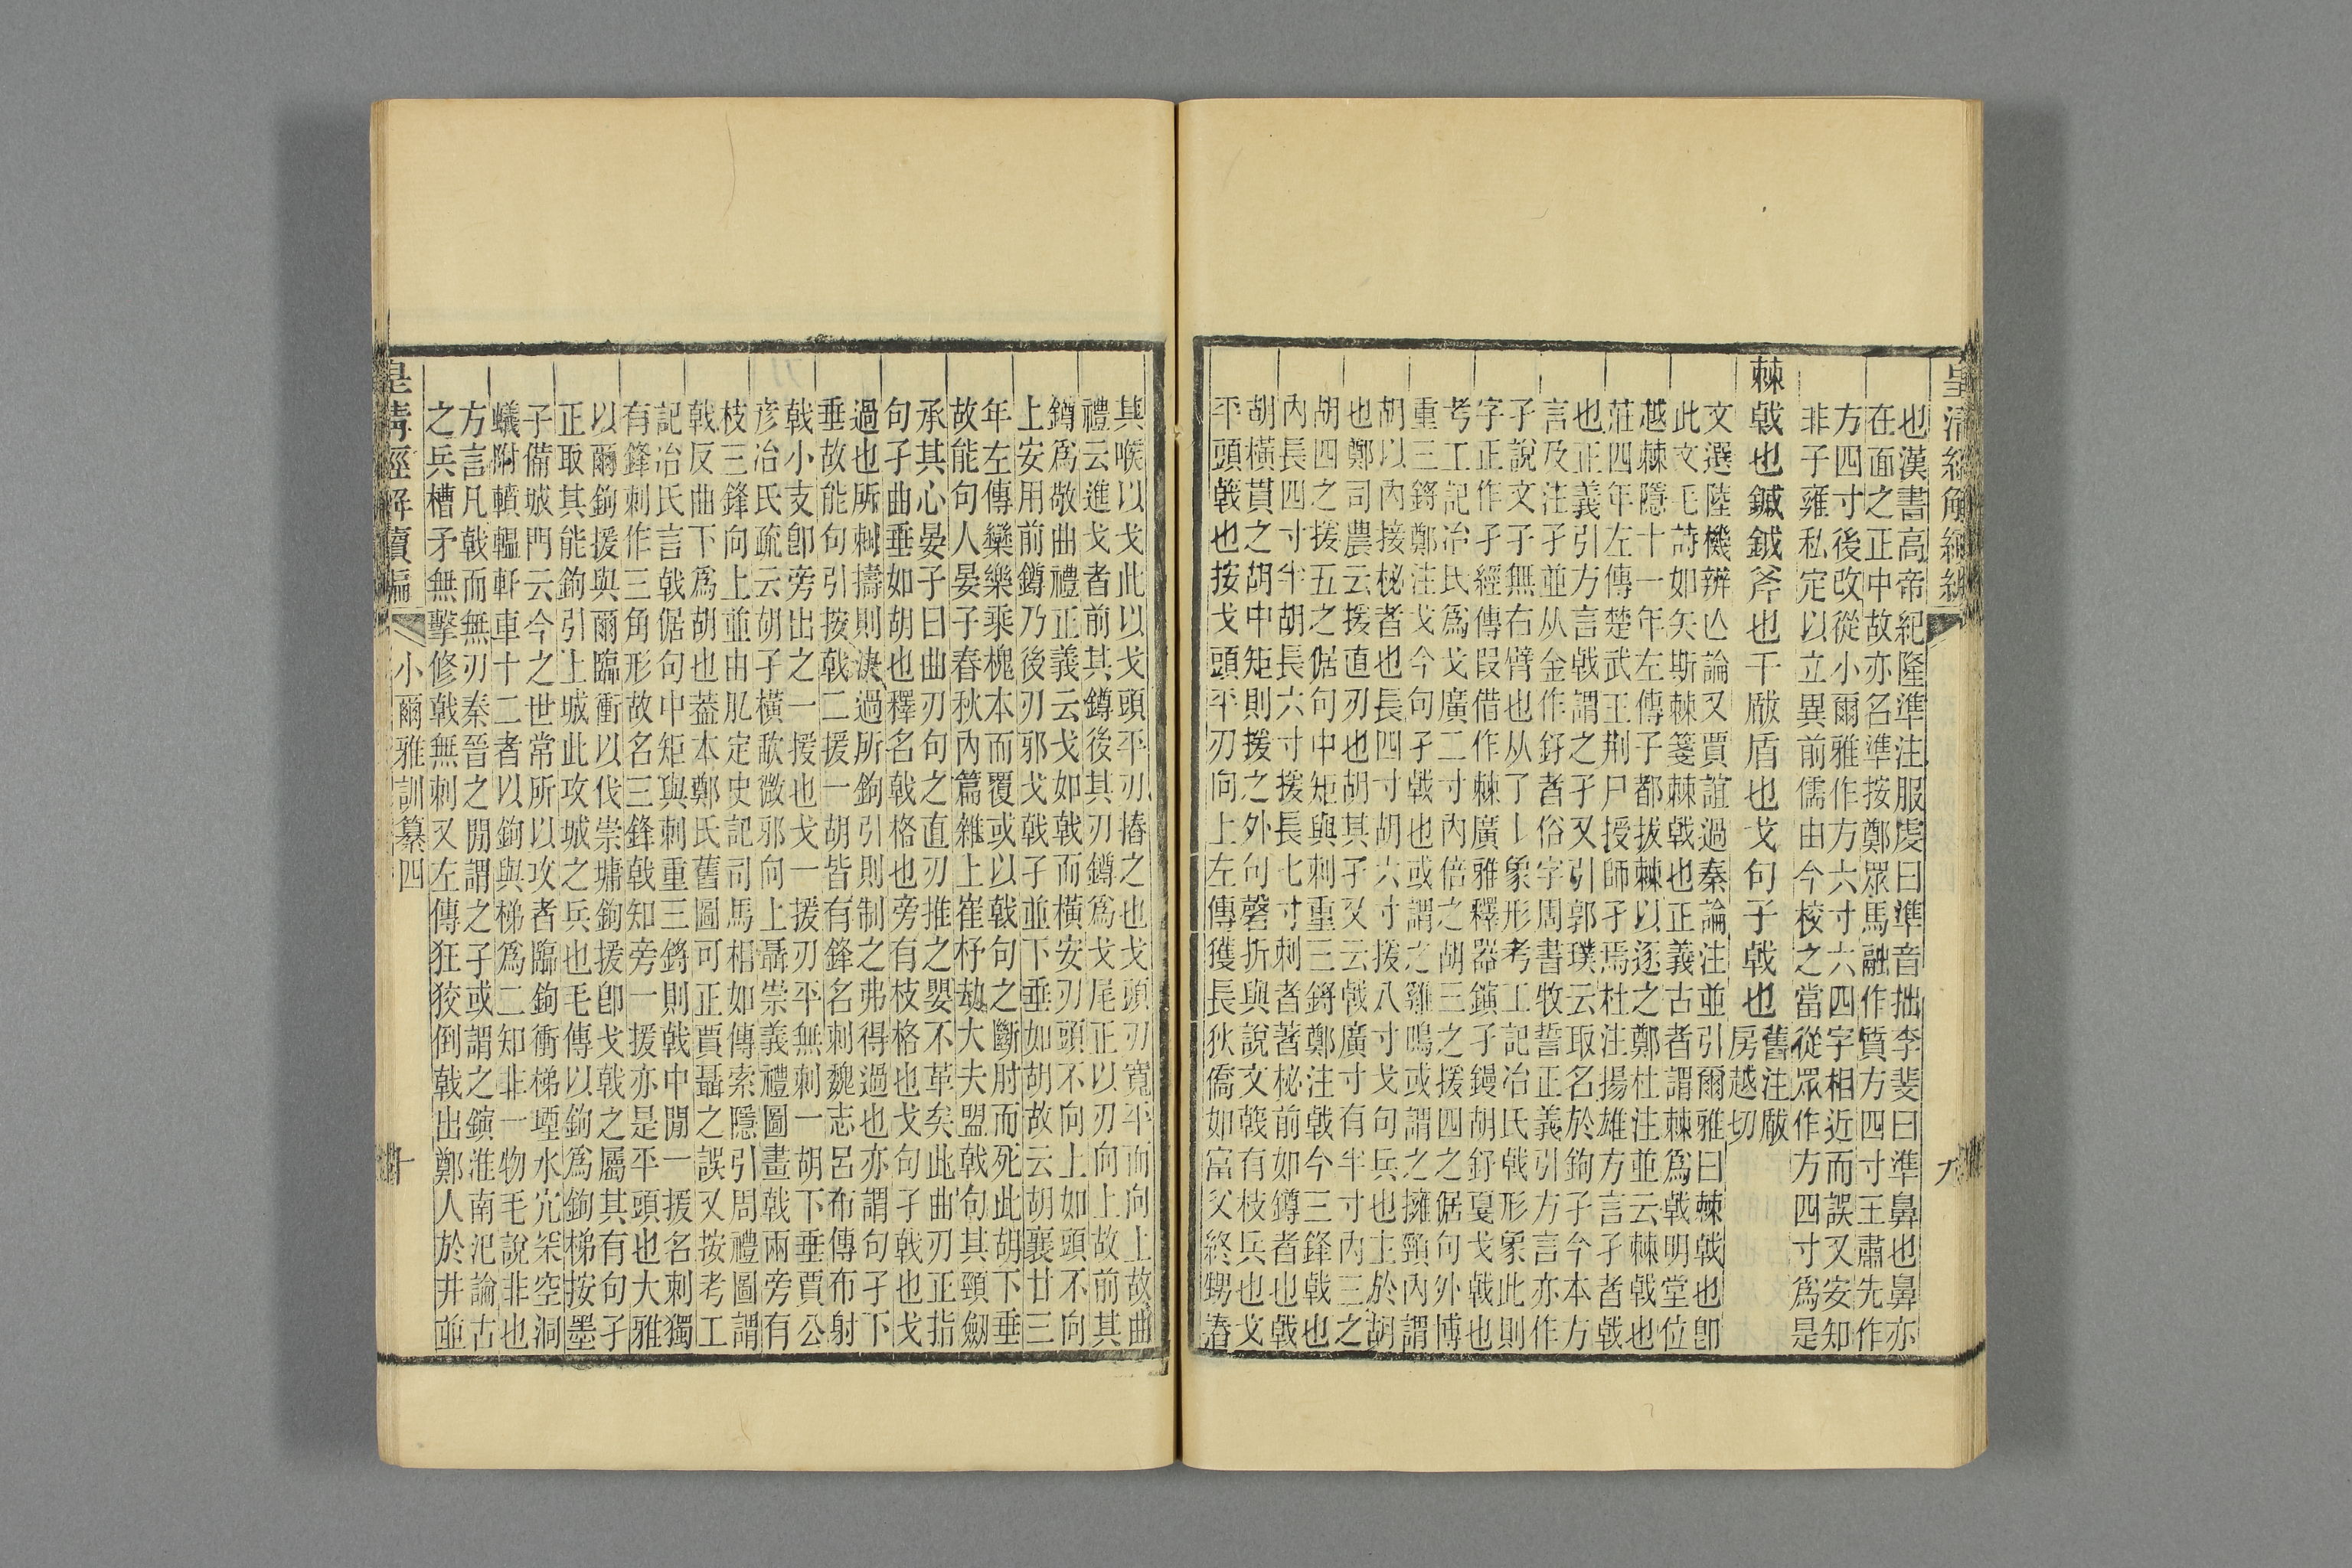 皇清經解續編
也漢書高帝紀隆準注服虔曰準音拙李斐曰準鼻也鼻亦
在面之正中故亦名準按鄭眾馬融作質方四寸王肅先作
方四寸後改從小爾雅作方六寸六四字相近而誤又安知
非子雍私定以立異前儒由今校之當從眾作方四寸為是
棘戟也鏚鉞斧也干瞂盾也戈句孑戟也
舊注瞂
房越切
文選陸機辨亾論又賈誼過秦論注並引爾雅曰棘戟也卽
此文毛詩如矢斯棘箋棘戟也正義古者謂棘為戟明堂位
越棘隱十一年左傳子都拔棘以逐之鄭杜注並云棘戟也
莊四年左傳楚武王荆尸授師孑焉杜注揚雄方言孑者戟
也正義引方言戟謂之孑又引郭璞云取名於鉤孑今本方
言及注孑並从金作釨者俗字周書牧誓正義引方言亦作
孑說文孑無右臂也从了乚象形考工記冶氏戟形象此則
字正作孑經傳叚借作棘廣雅釋器鏔子鏝胡釨戛戈戟也
考工記冶氏為戈廣二寸內倍之胡三之援四之倨句外博
重三鋝鄭注戈今句孑戟也或謂之雞鳴或謂之擁頸內謂
胡以內接柲者也長四寸胡六寸援八寸戈句兵也主於胡
也鄭司農云援直刃也胡其孑又云戟廣寸有半寸內三之
胡四之援五之倨句中矩與刺重三鋝鄭注戟今三鋒戟也
內長四寸半胡長六寸援長七寸刺者著柲前如鐏者也戟
胡橫貫之胡中矩則援之外句磬折與說文戟有枝兵也戈
平頭戟也按戈頭平刃向上左傳獲長狄僑如富父終甥摏
其喉以戈此以戈頭平刃摏之也戈頭刃寬平而向上故曲
禮云進戈者前其鐏後其刃鐏為戈尾正以刃向上故前其
鐏為敬曲禮正義云戈如戟而橫安刃頭不向上如頭不向
上安用前鐏乃後刃邪戈戟子並下垂如胡故云胡襄廿三
年左傳欒樂乘槐本而覆或以戟句之斷肘而死此胡下垂
故能句人晏子春秋內篇雜上崔杼劫大夫盟戟句其頸劒
承其心晏子曰曲刃句之直刃推之嬰不革矣此曲刃正指
句孑曲垂如胡也釋名戟格也旁有枝格也戈句孑戟也戈
過也所刺擣則決過所鉤引則制之弗得過也亦謂句孑下
垂故能句引按戟二援一胡皆有鋒名刺魏志呂布傳布射
戟小支卽旁出之一援也戈一援刃平無刺一胡下垂賈公
彥冶氏疏云胡孑橫㰱微邪向上聶崇義禮圖畫戟兩旁有
枝三鋒向上並由凥定史記司馬相如傳索隱引周禮圖謂
戟反曲下為胡也蓋本鄭氏舊圖可正賈聶之誤又按考工
記冶氏言戟倨句中矩與刺重三鋝則戟中閒一援名刺獨
有鋒刺作三角形故名三鋒戟知旁一援亦是平頭也大雅
以爾鉤援與爾臨衝以伐崇墉鉤援卽戈戟之屬其有句孑
正取其能鉤引上城此攻城之兵也毛傳以鉤為鉤梯按墨
子備城門云今之世常所以攻者臨鉤衝梯堙水穴突空洞
蟻附轒轀軒車十二者以鉤與梯為二知非一物毛說非也
方言凡戟而無刃秦晉之閒謂之孑或謂之鏔淮南汜論古
之兵槽矛無擊修戟無刺又左傳狂狡倒戟出鄭人於井並
皇清經解續編
小爾雅訓纂四
十